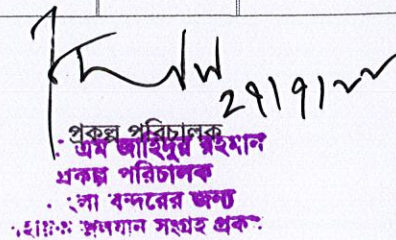 ২৭/৭/২২
প্রকল্প পরিচালক
এম জাহিদুর রহমান
প্রকল্প পরিচালক
লা বন্দরের জন্য
জলযান সংগ্রহ প্রক